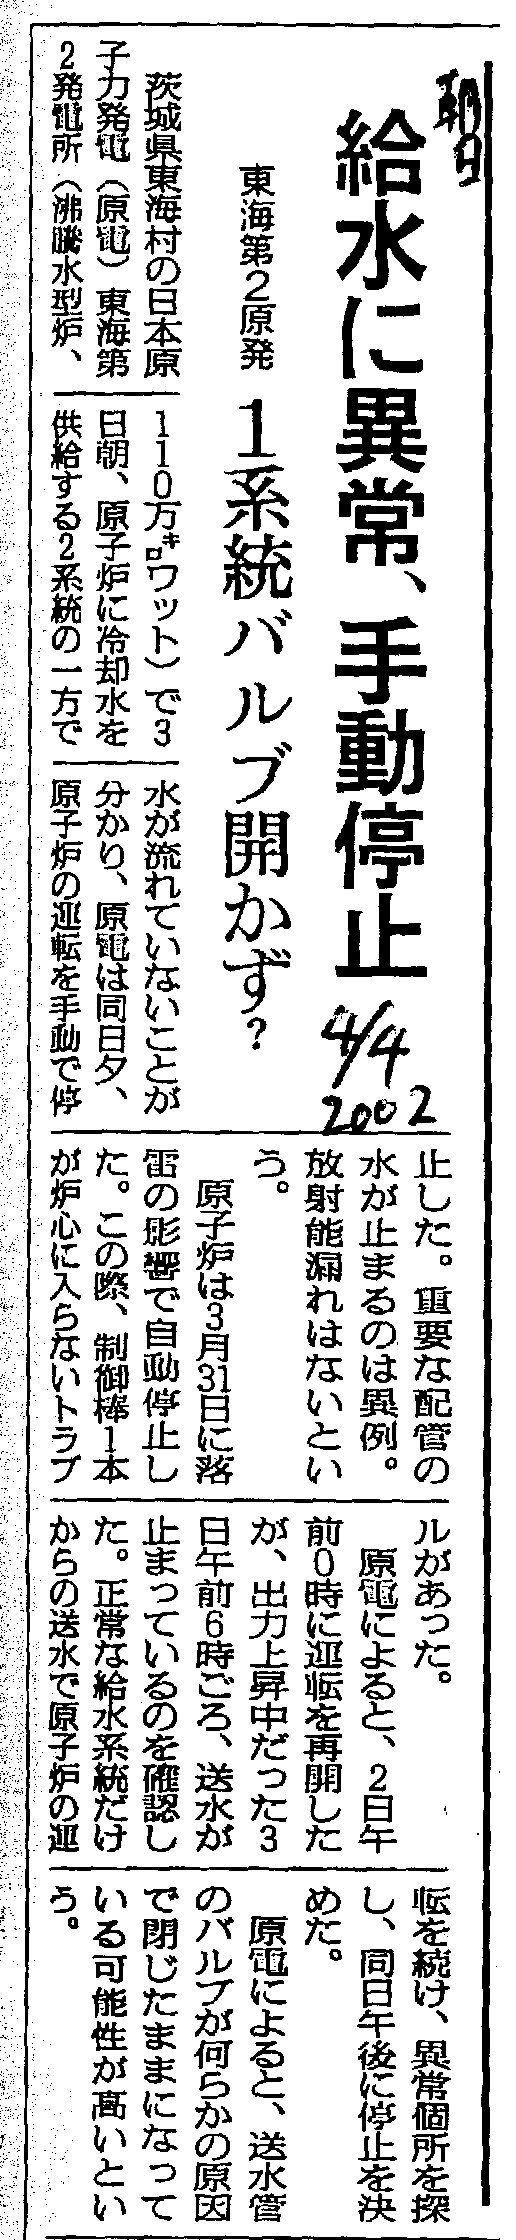 朝日
給水に異常、手動停止
4/4
2002
東海第2原発
1系統バルブ開かず?
茨城県東海村の日本原
子力発電(原電)東海第
2発電所(沸騰水型炉、
110万㌔ワット)で3
日朝、原子炉に冷却水を
供給する2系統の一方で
水が流れていないことが
分かり、原電は同日夕、
原子炉の運転を手動で停
止した。重要な配管の
水が止まるのは異例。
放射能漏れはないとい
う。
原子炉は3月31日に落
雷の影響で自動停止し
た。この際、制御棒1本
が炉心に入らないトラブ
ルがあった。
原電によると、2日午
前0時に運転を再開した
が、出力上昇中だった3
日午前6時ごろ、送水が
止まっているのを確認し
た。正常な給水系統だけ
からの送水で原子炉の運
転を続け、異常個所を探
し、同日午後に停止を決
めた。
原電によると、送水管
のバルブが何らかの原因
で閉じたままになって
いる可能性が高いとい
う。